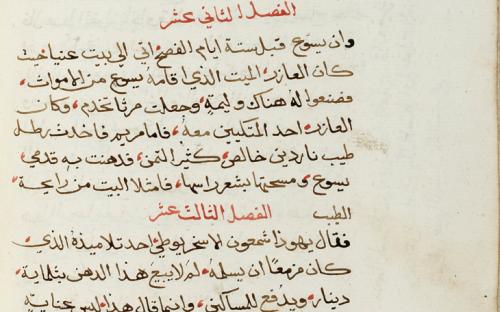 الفصل الثاني عشر
وان يسوع قبل ستة ايام الفصح اتى الى بيت عنيا حيث
كان العازر الميت الذي اقامه يسوع من الاموات،
فصنعوا له هناك وليمة وجعلت مرتا تخدم، وكان
العازر احد المتكيين معه، فاما مريم فاخذت رطل
طيب ناردين خالص كثير الثمن، فدهنت به قدمي
يسوع ومسحتها بشعر راسها، فامتلا البيت من رايحة
الطيب الفصل الثالث عشر
فقال يهوذا شمعون الاسخريوطي احد تلاميذه الذي
كان مزمعا ان يسلمه، لم لا يبيع هذا الدهن بثلثماية
دينار ويدفع للمساكين، وانما قال هذا ليس عناية